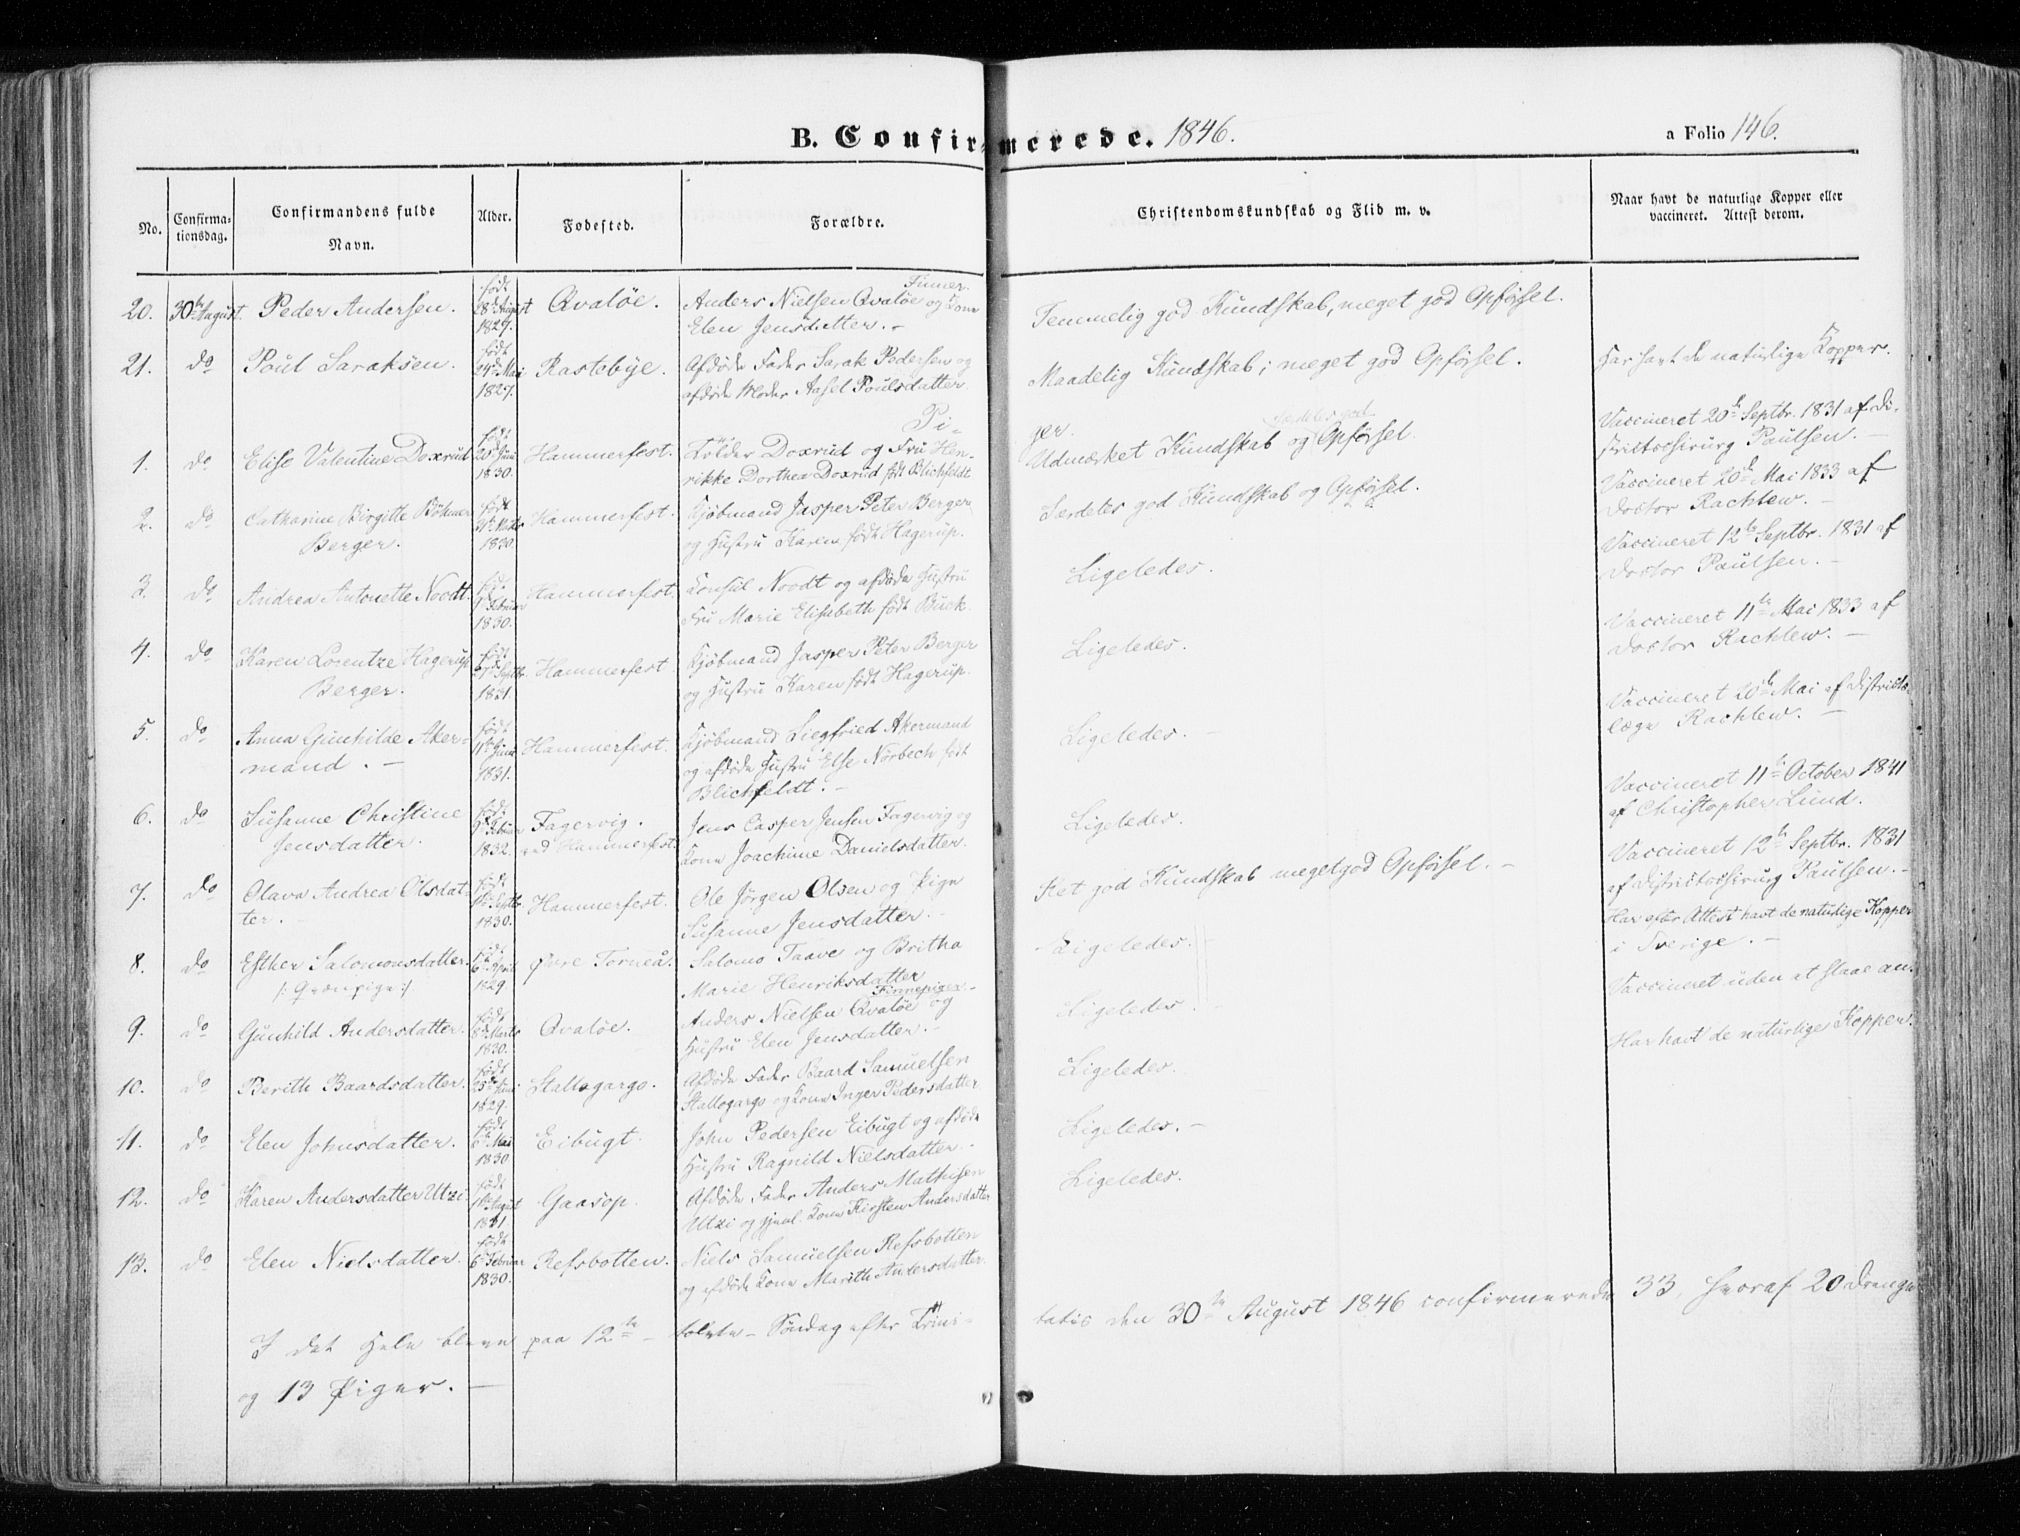 B. Confirmerede. 1846.
a Folio 146.
No.
Confirma-
tionsdag.
Confirmandens fulde
Navn.
Alder.
Fødested.
Forældre.
Christendomskundskab og Flid m. v.
Naar havt de naturlige Kopper eller
vaccineret. Attest derom.
20. 30te August. Peder Andersen. født 28de August 1829. Qvaløe.
Finner.
Anders Nielsen Qvaløe og Kone
Elen Jensdatter. -
Temmelig god Kundskab, meget god Opførsel.
21. do Poul Saraksen. født 24de Mai 1827. Rastebye.
Afdøde Fader Sarak Pedersen og
afdøde Moder Aasel Poulsdatter
Maadelig Kundskab; meget god Opførsel.
Har havt de naturlige Kopper.
Pi-
ger.
1. do Elise Valentine Doxrud født 20de Juni 1830. Hammerfest.
Tolder Doxrud og Fru Hen-
rikke Dorthea Doxrud født Blichfeldt
særdeles god
Udmærket Kundskab og Opførsel.
Vaccineret 20de Septbr. 1831 af Di-
strictschirurg Paulsen. -
2. do Catharine Birgitte Böhmer
Berger. født Marts 1830. Hammerfest.
Kjøbmand Jasper Peter Berger
og Hustru Karen født Hagerup.
Særdeles god Kundskab og Opførsel.
Vaccineret 20de Mai 1833 af
Doctor Rachlew. -
3. do Andrea Antonette Noodt. født Februar 1830. Hammerfest.
Consul Noodt og afdøde Hustru
Fru Marie Elisabeth født Buck.
Ligeledes.
Vaccineret 12te Septbr. 1831 af
Doctor Paulsen. -
4. do Karen Lorentze Hagerup
Berger. født Septbr. 1831 Hammerfest
Kjøbmand Jasper Peter Berger
og Hustru Karen født Hagerup.
Ligeledes.
Vaccineret 11te Mai 1833 af
Doctor Rachlew. -
5. do Anna Gunhilde Aker-
mand. - født 11te Juni 1831. Hammerfest.
Kjøbmand Siegfried Akermand
og afdøde Hustru Else Norbech født
Blichfeldt. -
Ligeledes. -
Vaccineret 20de Mai af Districts-
læge Rachlew. -
6. do Susanne Christine
Jensdatter. født Februar 1832. Fagervig.
ved Hammerfest.
Jens Casper Jensen Fagervig og
Kone Joachime Danielsdatter.
Ligeledes.
Vaccineret 11te October 1841
af Christopher Lund.
7. do Olava Andrea Olsdat-
ter. - født Septbr 1830. Hammerfest.
Ole Jörgen Olsen og Pige
Susanne Jensdatter. -
Ret god Kundskab meget god Opførsel. -
Vaccineret 12te Septbr. 1831
af Districtschirurg Paulsen. -
8. do Esther Salomonsdatter.
/: Qvænpige :/ født 6te April 1829. Øvre Torneå.
Salomo Taave og Britha
Marie Henriksdatter
- Ligeledes. -
Har efter Attest havt de naturlige Kopper
i Sverige. -
9. do Gunhild Andersdatter. født 8de Marts 1830. Qvaløe.
Finnepiger -
Anders Nielsen Qvaløe og
Hustru Elen Jensdatter. -
Ligeledes
Vaccineret uden at slaae an.
10. do Berith Baardsdatter. født 25de Juni 1829. Stallogargo.
Afdøde Fader Baard Samuelsen
Stallogargo og Kone Inger Pedersdatter
Ligeledes.
Har havt de naturlige Kopper.
11. do Elen Johnsdatter. født 6te Mai 1830 Eibugt.
John Pedersen Eibugt og afdøde
Hustru Ragnild Nielsdatter. -
Ligeledes. -
12. do Karen Andersdatter Utzi. født August 1831. Gaasop.
Afdøde Fader Anders Mathisen
Utzi og Kone Kirsten Andersdatter
Ligeledes.
13. do Elen Nielsdatter. født 6te Februar 1830. Refsbotten.
Niels Samuelsen Refsbotten
og afdøde Kone Marith Andersdatter.
I det Hele bleve paa 12te - tolvte - Søndag efter Trini-
tatis den 30te August 1846 confirmerede 33, hvoraf 20 Drenge
og 13 Piger. -